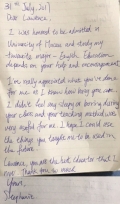 31st July, 2017
Dear Lawrence,
I was honored to be admitted in
University of Macau and study my
favourite major – English Education
depends on your help and encouragement.
I'm really appreciated what you've done
for me as I know how busy you are.
I didn't feel any sleepy or boring during
your class and your teaching method was
very useful for me. I hope I could use
the things you taught me to be used in
the future.
Lawrence, you are the best teacher that I
ever
Yours,
Stephanie